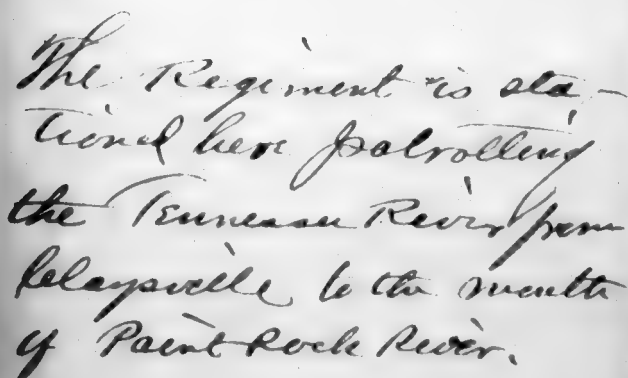 The Regiment is sta-
tioned here patrolling
the Tennessee River from
Claysville to the mouth
of Paint Rock River.